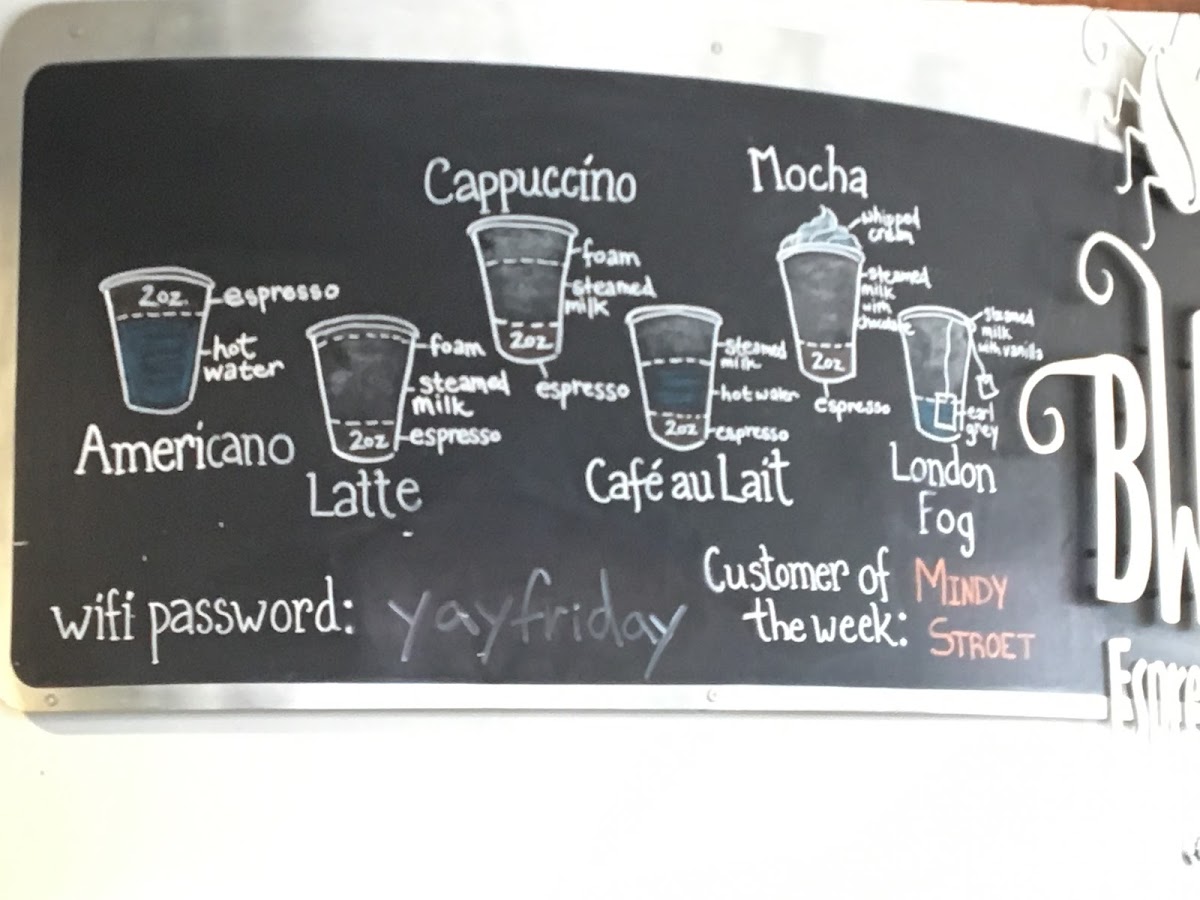 Cappuccino
foam
steamed
milk
2oz
espresso
Mocha
whipped
cream
steamed
milk
with
chocolate
2oz
espresso
2oz.
espresso
hot
water
Americano
foam
steamed
milk
2oz
espresso
Latte
steamed
milk
hot water
2oz
espresso
Café au Lait
steamed
milk
with vanilla
earl
grey
London
Fog
wifi password: yayfriday
Customer of
the week:
MINDY
STROET